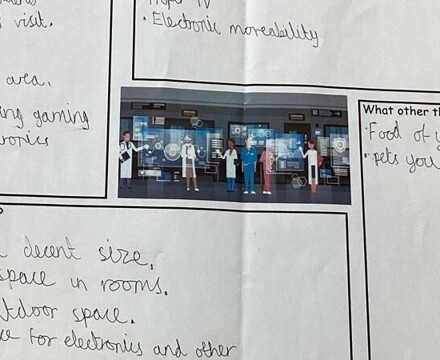 s visit.
Hyper TV
• Electronic moreability
area.
ing gaming
tronics
What other th
Food of y
• pets you
a decent size.
space in rooms.
tdoor space.
ce for electronics and other